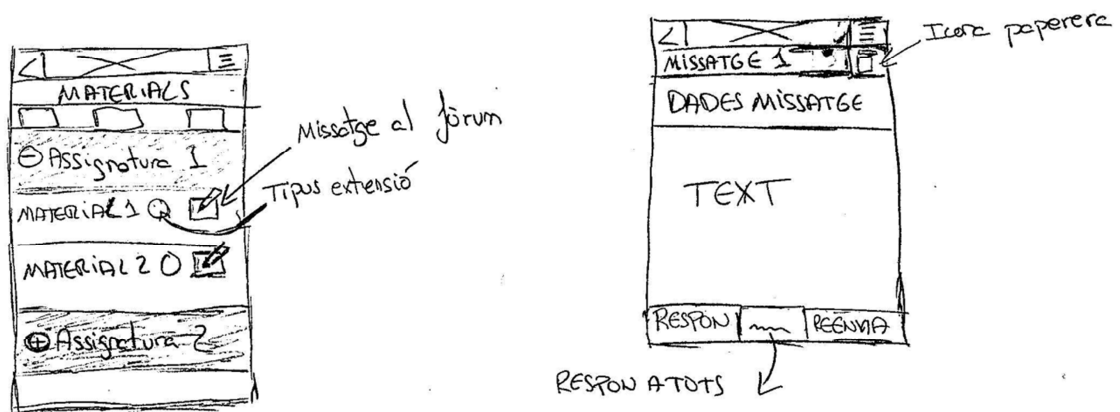 MATERIALS
Assignatura 1
MATERIAL 1
MATERIAL 2
Assignatura 2
Missatge al fòrum
Tipus extensió
MISSATGE 1
DADES MISSATGE
TEXT
RESPON
REENVIA
RESPON A TOTS
Icona paperera